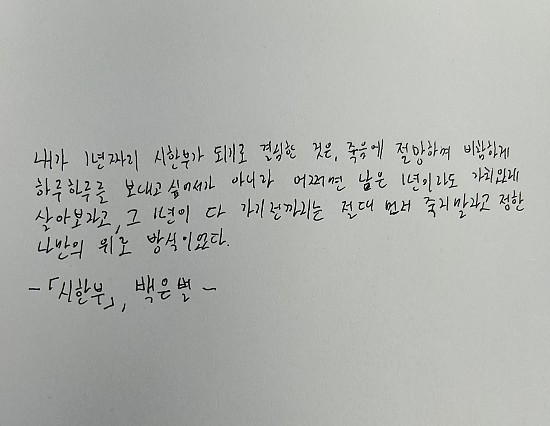 내가 1년짜리 시한부가 되기로 결심한 것은, 죽음에 절망하며 비참하게
하루하루를 보내고 싶어서가 아니라 어쩌면 남은 1년이라도 가치있게
살아보라고, 그 1년이 다 가기 전까지는 절대 먼저 죽지 말라고 정한
나만의 위로 방식이었다.
-「시한부」, 백은별-